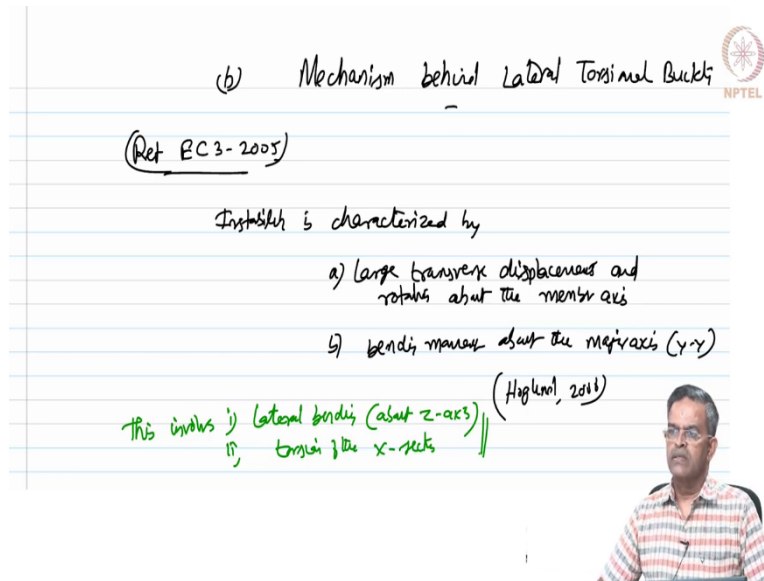 (b) Mechanism behind Lateral Torsional Buckli
NPTEL
(Ref EC3-2005)
Instability is characterized by
a) large transverse displacement and
rotation about the member axis
b) bending moment about the major axis (y-y)
(Hoglund, 2006)
This involves i) Lateral bending (about z-axis)
ii) torsion of the x-section